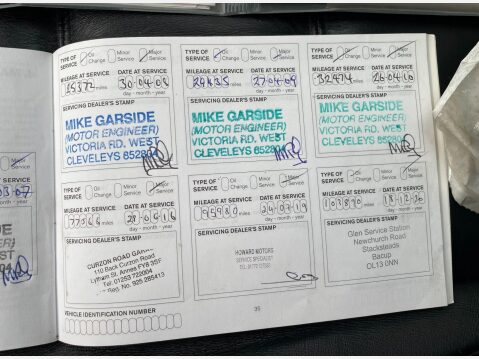 TYPE OF SERVICE Oil Change Minor Service Major Service
MILEAGE AT SERVICE DATE AT SERVICE
miles 30-04-08
day - month - year
SERVICING DEALER'S STAMP
MIKE GARSIDE
(MOTOR ENGINEER)
VICTORIA RD. WEST
CLEVELEYS
TYPE OF SERVICE Oil Change Minor Service Major Service
MILEAGE AT SERVICE DATE AT SERVICE
miles 27-04-09
day - month - year
SERVICING DEALER'S STAMP
MIKE GARSIDE
(MOTOR ENGINEER)
VICTORIA RD. WEST
CLEVELEYS
TYPE OF SERVICE Oil Change Minor Service Major Service
MILEAGE AT SERVICE DATE AT SERVICE
32974 miles 26-04-10
day - month - year
SERVICING DEALER'S STAMP
MIKE GARSIDE
(MOTOR ENGINEER)
VICTORIA RD. WEST
CLEVELEYS
TYPE OF SERVICE Oil Change Minor Service Major Service
MILEAGE AT SERVICE DATE AT SERVICE
miles
day - month - year
SERVICING DEALER'S STAMP
CURZON ROAD
110 Back Curzon Road
Lytham St. Annes FY8 3SF
Tel: 01253 722004
Reg. No. 925 285413
TYPE OF SERVICE Oil Change Minor Service Major Service
MILEAGE AT SERVICE DATE AT SERVICE
95980 miles 24-07-19
day - month - year
SERVICING DEALER'S STAMP
HOWARD MOTORS
SERVICE SPECIALIST
TYPE OF SERVICE Oil Change Minor Service Major Service
MILEAGE AT SERVICE DATE AT SERVICE
103890 miles 18-12-20
day - month - year
SERVICING DEALER'S STAMP
Glen Service Station
Newchurch Road
Stacksteads
Bacup
OL13 0NN
VEHICLE IDENTIFICATION NUMBER
35